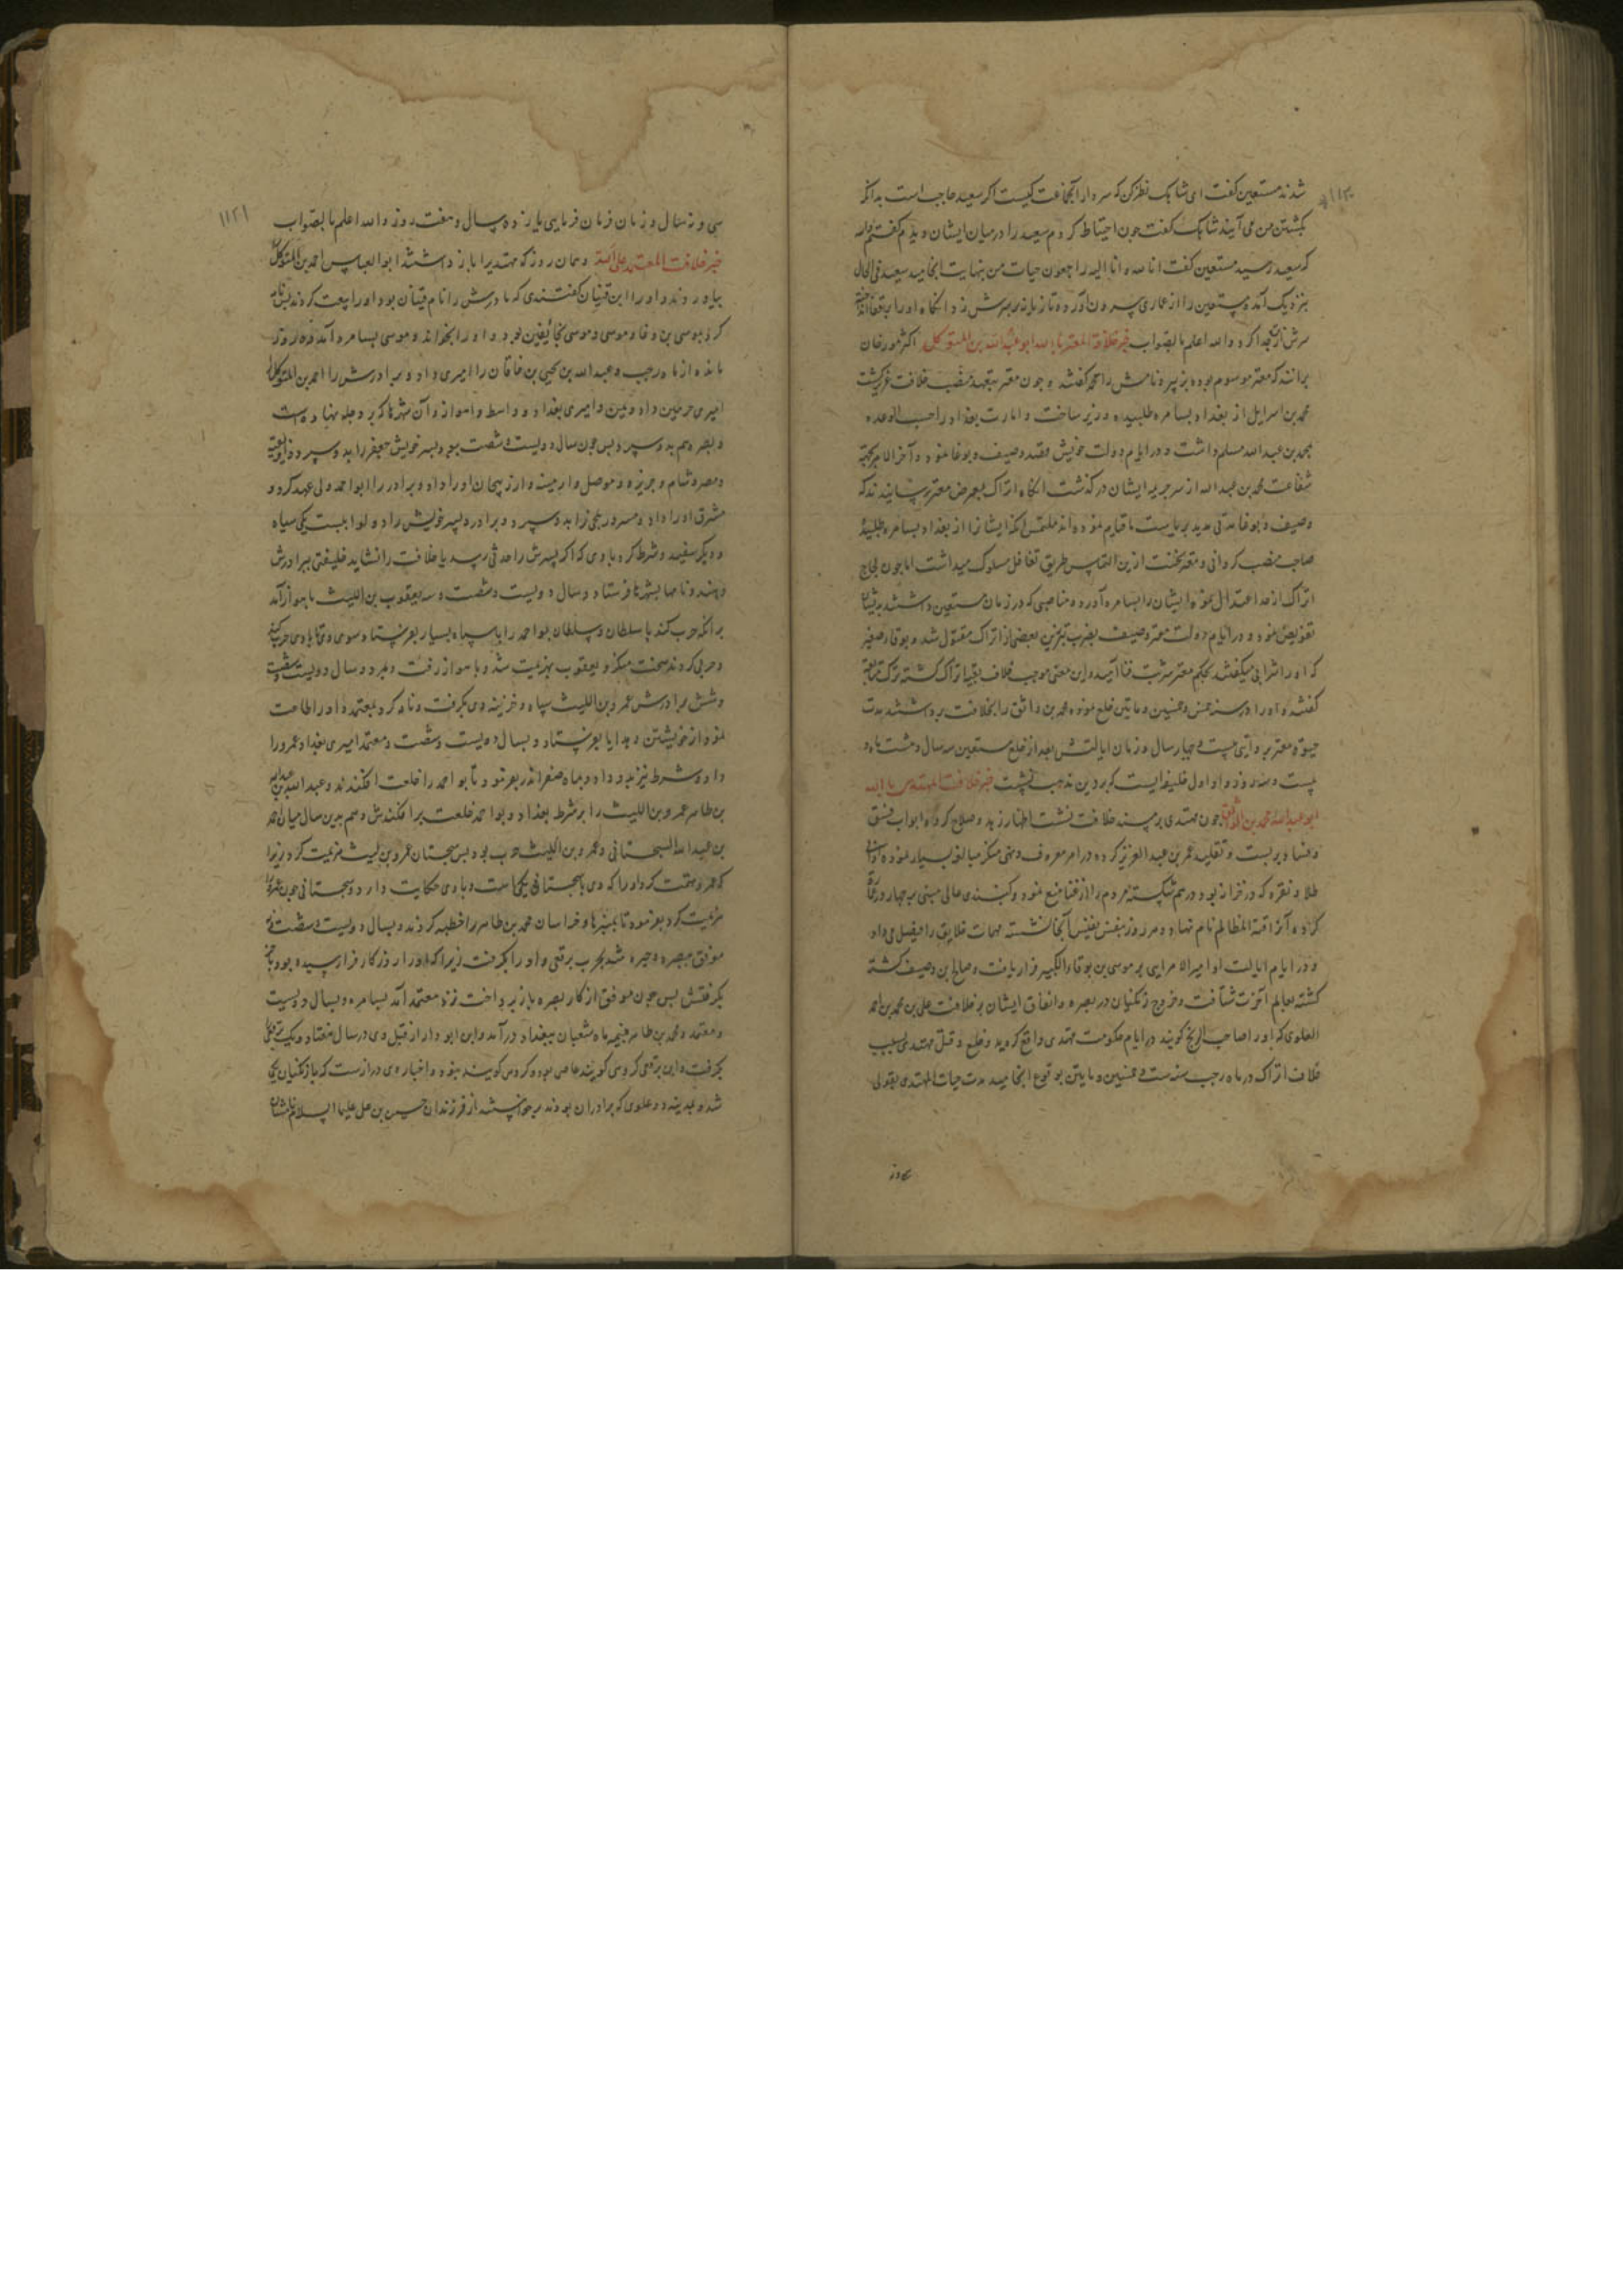 ۱۱۲۰
شدند مستعین گفت ای شاهک نظر کن که سردار آنجماعت کیست اگر سعید حاجب است بدانکه
بکشتن من می آیند شاهک گفت جون احتیاط کردم سعید را درمیان ایشان دیدم گفتم والله
که سعید رسید مستعین گفت انا لله و انا الیه راجعون حیات من بنهایت انجامید سعید فی الحال
بنزدیک آمد و مستعین را از عماری بیرون آورده و تازیانه بر سرش زد انکاه او را بقفا
سرش از تن جدا کرد والله اعلم بالصواب خبر خلافة المعتز بالله ابو عبدالله بن المتوکل اکثر مورخان
برانند که معتز موسوم بوده بزبیر و نامش را محمد گفتند و جون معتز بتعهد منصب خلافت
محمد بن اسرایل از بغداد بسامره طلبیده وزیر ساخت و امارت بغداد را حسب الوعده
بمحمد بن عبدالله مسلم داشت و در ایام دولت خویش قصد وصیف و بوغا نمود و آخر الامر بجهة
شفاعت محمد بن عبدالله از سر جریمه ایشان درگذشت انکاه اتراک بعرض معتز رسانیدند که
وصیف و بوغا مدتی مدید بریاست ما قیام نموده اند ملتمس انکه ایشان را از بغداد بسامره طلبیده
صاحب منصب کردانی و معتز نخست ازین التماس طریق تغافل مسلوک میداشت اما جون لجاج
اتراک از حد اعتدال نموده ایشان را بسامره آورد و مناصبی که در زمان مستعین داشتند بدیشان
تفویض نمود و در ایام دولت معتز وصیف بضرب تبرزین بعضی از اتراک مقتول شد و بوقاء صغیر
که او را شرابی میگفتند بحکم معتز شربت فنا و این معنی موجب خلاف اتراک گشته ترک متابعت
گفتند و او را در سنه خمس و خمسین و ماتین خلع نموده محمد بن واثق را بخلافت برداشتند مدت
حیوة معتز بروایتی بیست و چهار سال و زمان ایالتش بعد از خلع مستعین سه سال و هشت ماه و
بیست و سه روز و او اول خلیفه ایست که برین مذهب خبر خلافت المهتدی بالله
ابو عبدالله محمد بن الواثق جون مهتدی بر مسند خلافت نشست اظهار زهد و صلاح کرده ابواب فسق
و فساد بر بست و تقلید عمر بن عبدالعزیز کرده در امر معروف و نهی منکر مبالغه بسیار نموده
طلا و نقره که در خزانه بود درهم شکسته مردم را از غنا منع نمود و گنبدی عالی مبنی بر چهار دروازه
کرده آنرا قبة المظالم نام نهاد و هر روز بنفس نفیس آنجا نشسته مهمات خلایق را فیصل می داد
و در ایام ایالت او امیر الامرایی بر موسی بن بوقاء الکبیر قرار یافت و صالح بن وصیف گشته
کشته بعالم آخرت شتافت و خروج زنکیان در بصره و اتفاق ایشان بر خلافت علی بن محمد بن احمد
العلوی که او را صاحب الزنج گویند در ایام حکومت مهتدی واقع کردید و خلع و قتل مهتدی بسبب
خلاف اتراک در ماه رجب سنه ست و خمسین و مایتین بوقوع انجامید مدت حیات المهتدی بقولی
سی و نه
۱۱۲۱
سی و نه سال و زمان فرمان فرمایی یازده سال و هفت روز والله اعلم بالصواب
خبر خلافت المعتمد علی الله و همان روز که مهتدی را باز داشتند ابوالعباس احمد بن المتوکل را
بیاوردند و او را ابن قتیان گفتندی که مادرش را نام قتیان بود او را بیعت کردند بس نامه
کرد بموسی بن وقا و موسی بخانقین بود و او را بخواند و موسی بسامره آمد ده روز
مانده از ماه رجب و عبدالله بن یحیی بن خاقان را امیری داد و برادرش را احمد بن المتوکل را
امیری حرمین داد و یمن و امیری بغداد و واسط و اهواز و آن شهرها که بر دجله نهاده است
و بصره هم بدو سپرد بس جون سال دویست و شصت بود پسر خویش جعفر را بدو سپرد
و مصر و شام و جزیره و موصل و ارمینه و آذربیجان او را داد و برادر را ابو احمد ولی عهد کرد و
مشرق او را داد و مسرور بلخی را بدو سپرد و برادر و پسر خویش را دو لوا ببست یکی سیاه
و دیکر سفید و شرط کرد با وی که اکر پسرش را حدثی رسد یا خلافت را نشاید خلیفتی ببرادرش
دهند و نامها بشهرها فرستاد و سال دویست و شصت و سه یعقوب بن اللیث باهواز آمد
برانکه حرب کند با سلطان و سلطان بو احمد را با سپاه بسیار بفرستاد و موسی وقا با وی حرب کند
و حربی کردند سخت منکر و یعقوب بهزیمت شد و باهواز رفت و بمرد و سال دویست و شصت
و شش برادرش عمرو بن اللیث سپاه و خزینه وی بگرفت و نامه کرد بمعتمد و او را طاعت
نمود از خویشتن و هدایا بفرستاد و بسال دویست و شصت و معتمد امیری بغداد عمرو را
داد و شرط نیز بدو داد و بماه صفر اندر بفرمود تا بو احمد را خلعت افکندند و عبدالله بن
بن طاهر عمرو بن اللیث را بر شرط بغداد و بو احمد خلعت برافکندش و هم بدین سال میان احمد
بن عبدالله السجستانی و عمرو بن اللیث حرب بود بس سجستان عمرو بن لیث هزیمت کرد زیرا
که عمرو تهمت کرد او را که وی با سجستانی یکی است و با وی حکایت دارد و سجستانی جون عمرو را
هزیمت کرد بفرمود تا بمنبرهاء خراسان محمد بن طاهر را خطبه کردند و بسال دویست و شصت و
موفق ببصره و جیره شد بحرب برقعی و او را بگرفت زیرا که او را روزگار فراز رسیده بود
بگرفتش بس جون موفق از کار بصره باز پرداخت نزد معتمد آمد بسامره و بسال دویست
و معتمد و محمد بن طاهر نیمه ماه شعبان ببغداد درآمد و ابن ابو داراز قبل وی در سال هفتاد و یک
بگرفت و این برقعی گروهی گویند خاص بود و گروهی گویند نبود و اخبار وی درازست که با زنکیان یکی
شد و بمدینه دو علوی که برادران بودند برخواستند از فرزندان حسین بن علی علیهما السلام